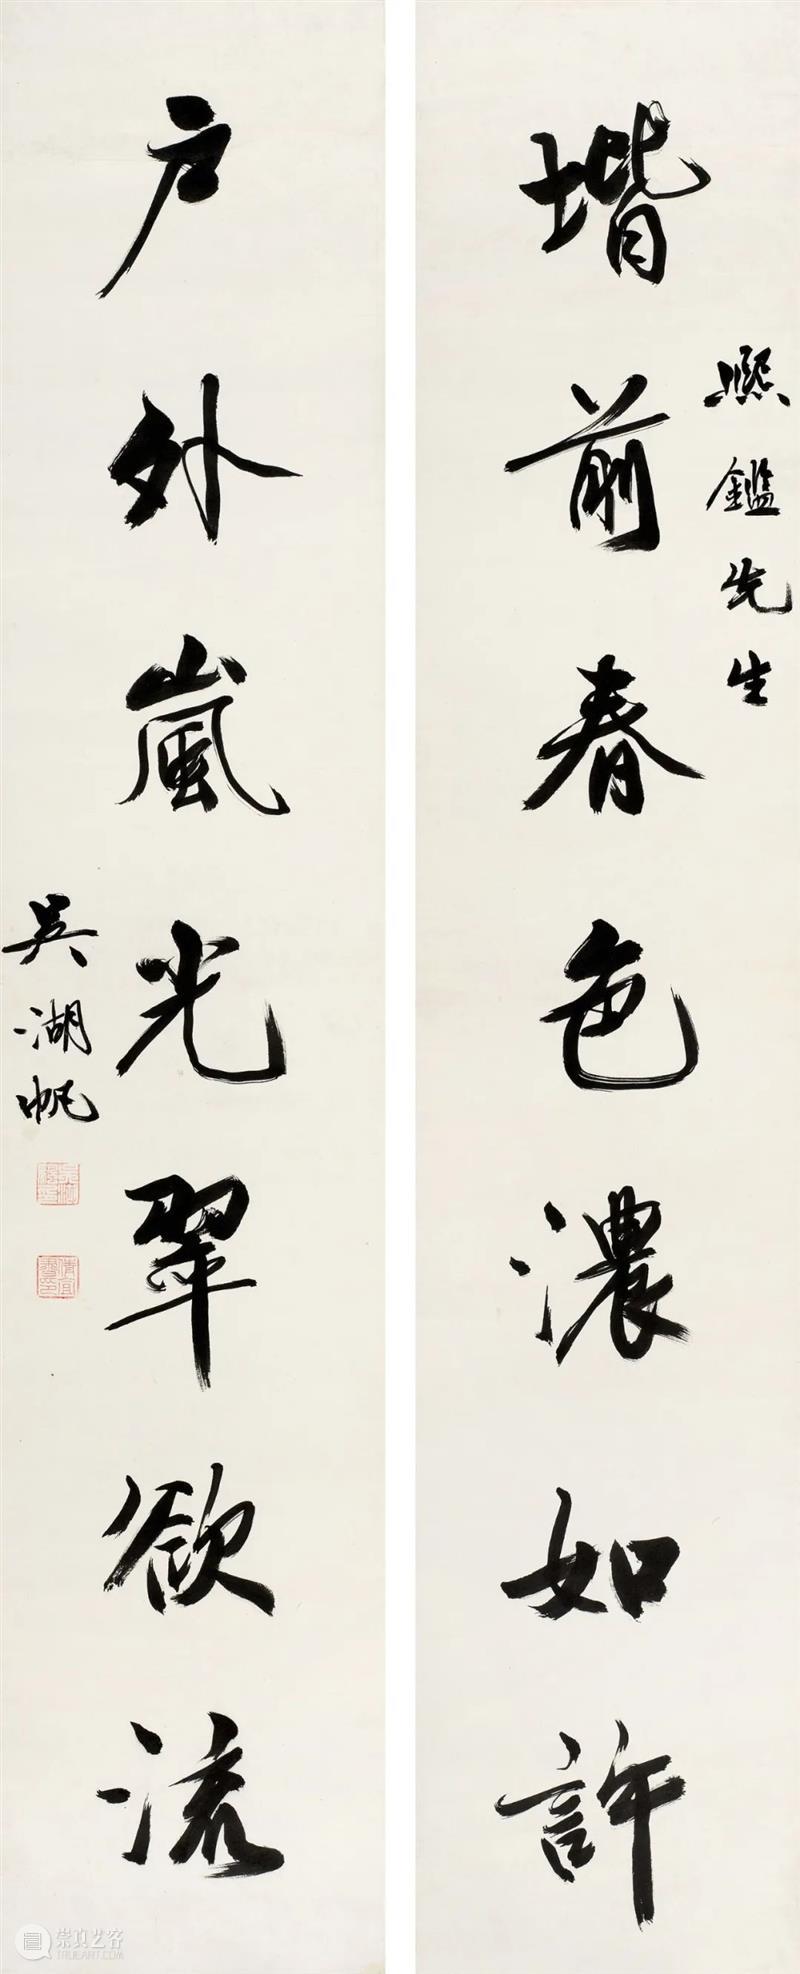 堦前春色濃如許
熙鑑先生
户外嵐光翠欲流
吳湖帆
崇真艺客
TRUEART.COM